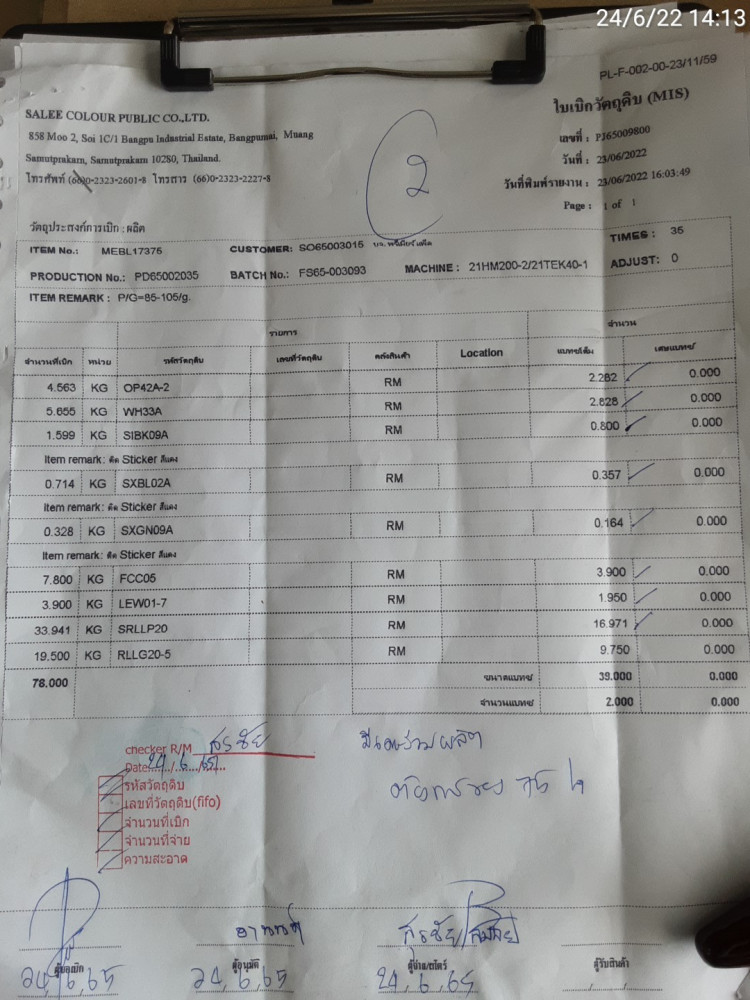 24/6/22 14:13
PL-F-002-00-23/11/59
SALEE COLOUR PUBLIC CO.,LTD.
ใบเบิกวัตถุดิบ (MIS)
858 Moo 2, Soi 1C/1 Bangpu Industrial Estate, Bangpumai, Muang
เลขที่ : PJ65009800
Samutprakarn, Samutprakarn 10280, Thailand.
วันที่ : 23/06/2022
โทรศัพท์ (66)0-2323-2601-8 โทรสาร (66)0-2323-2227-8
วันที่พิมพ์รายงาน : 23/06/2022 16:03:49
2
Page : 1 of 1
วัตถุประสงค์การเบิก : ผลิต
ITEM No.: MEBL17375 CUSTOMER: SO65003015 TIMES : 35
PRODUCTION No.: PD65002035 BATCH No.: FS65-003093 MACHINE : 21HM200-2/21TEK40-1 ADJUST: 0
ITEM REMARK : P/G=85-105/g.
รายการ จำนวน
จำนวนที่เบิก หน่วย รหัสวัตถุดิบ เลขที่วัตถุดิบ คลังสินค้า Location แบทช์เต็ม เศษแบทช์
4.563 KG OP42A-2 RM 2.282 0.000
5.655 KG WH33A RM 2.828 0.000
1.599 KG SIBK09A RM 0.800 0.000
Item remark: ติด Sticker สีแดง
0.714 KG SXBL02A RM 0.357 0.000
Item remark: ติด Sticker สีแดง
0.328 KG SXGN09A RM 0.164 0.000
Item remark: ติด Sticker สีแดง
7.800 KG FCC05 RM 3.900 0.000
3.900 KG LEW01-7 RM 1.950 0.000
33.941 KG SRLLP20 RM 16.971 0.000
19.500 KG RLLG20-5 RM 9.750 0.000
78.000 ขนาดแบทช์ 39.000 0.000
จำนวนแบทช์ 2.000 0.000
checker R/M สรชัย
Date 24/6/65
รหัสวัตถุดิบ
เลขที่วัตถุดิบ(fifo)
จำนวนที่เบิก
จำนวนที่จ่าย
ความสะอาด
อานนท์ สรชัย/
ผู้ขอเบิก ผู้อนุมัติ ผู้จ่าย/สโตร์ ผู้รับสินค้า
24,6,65 24,6,65 24,6,65